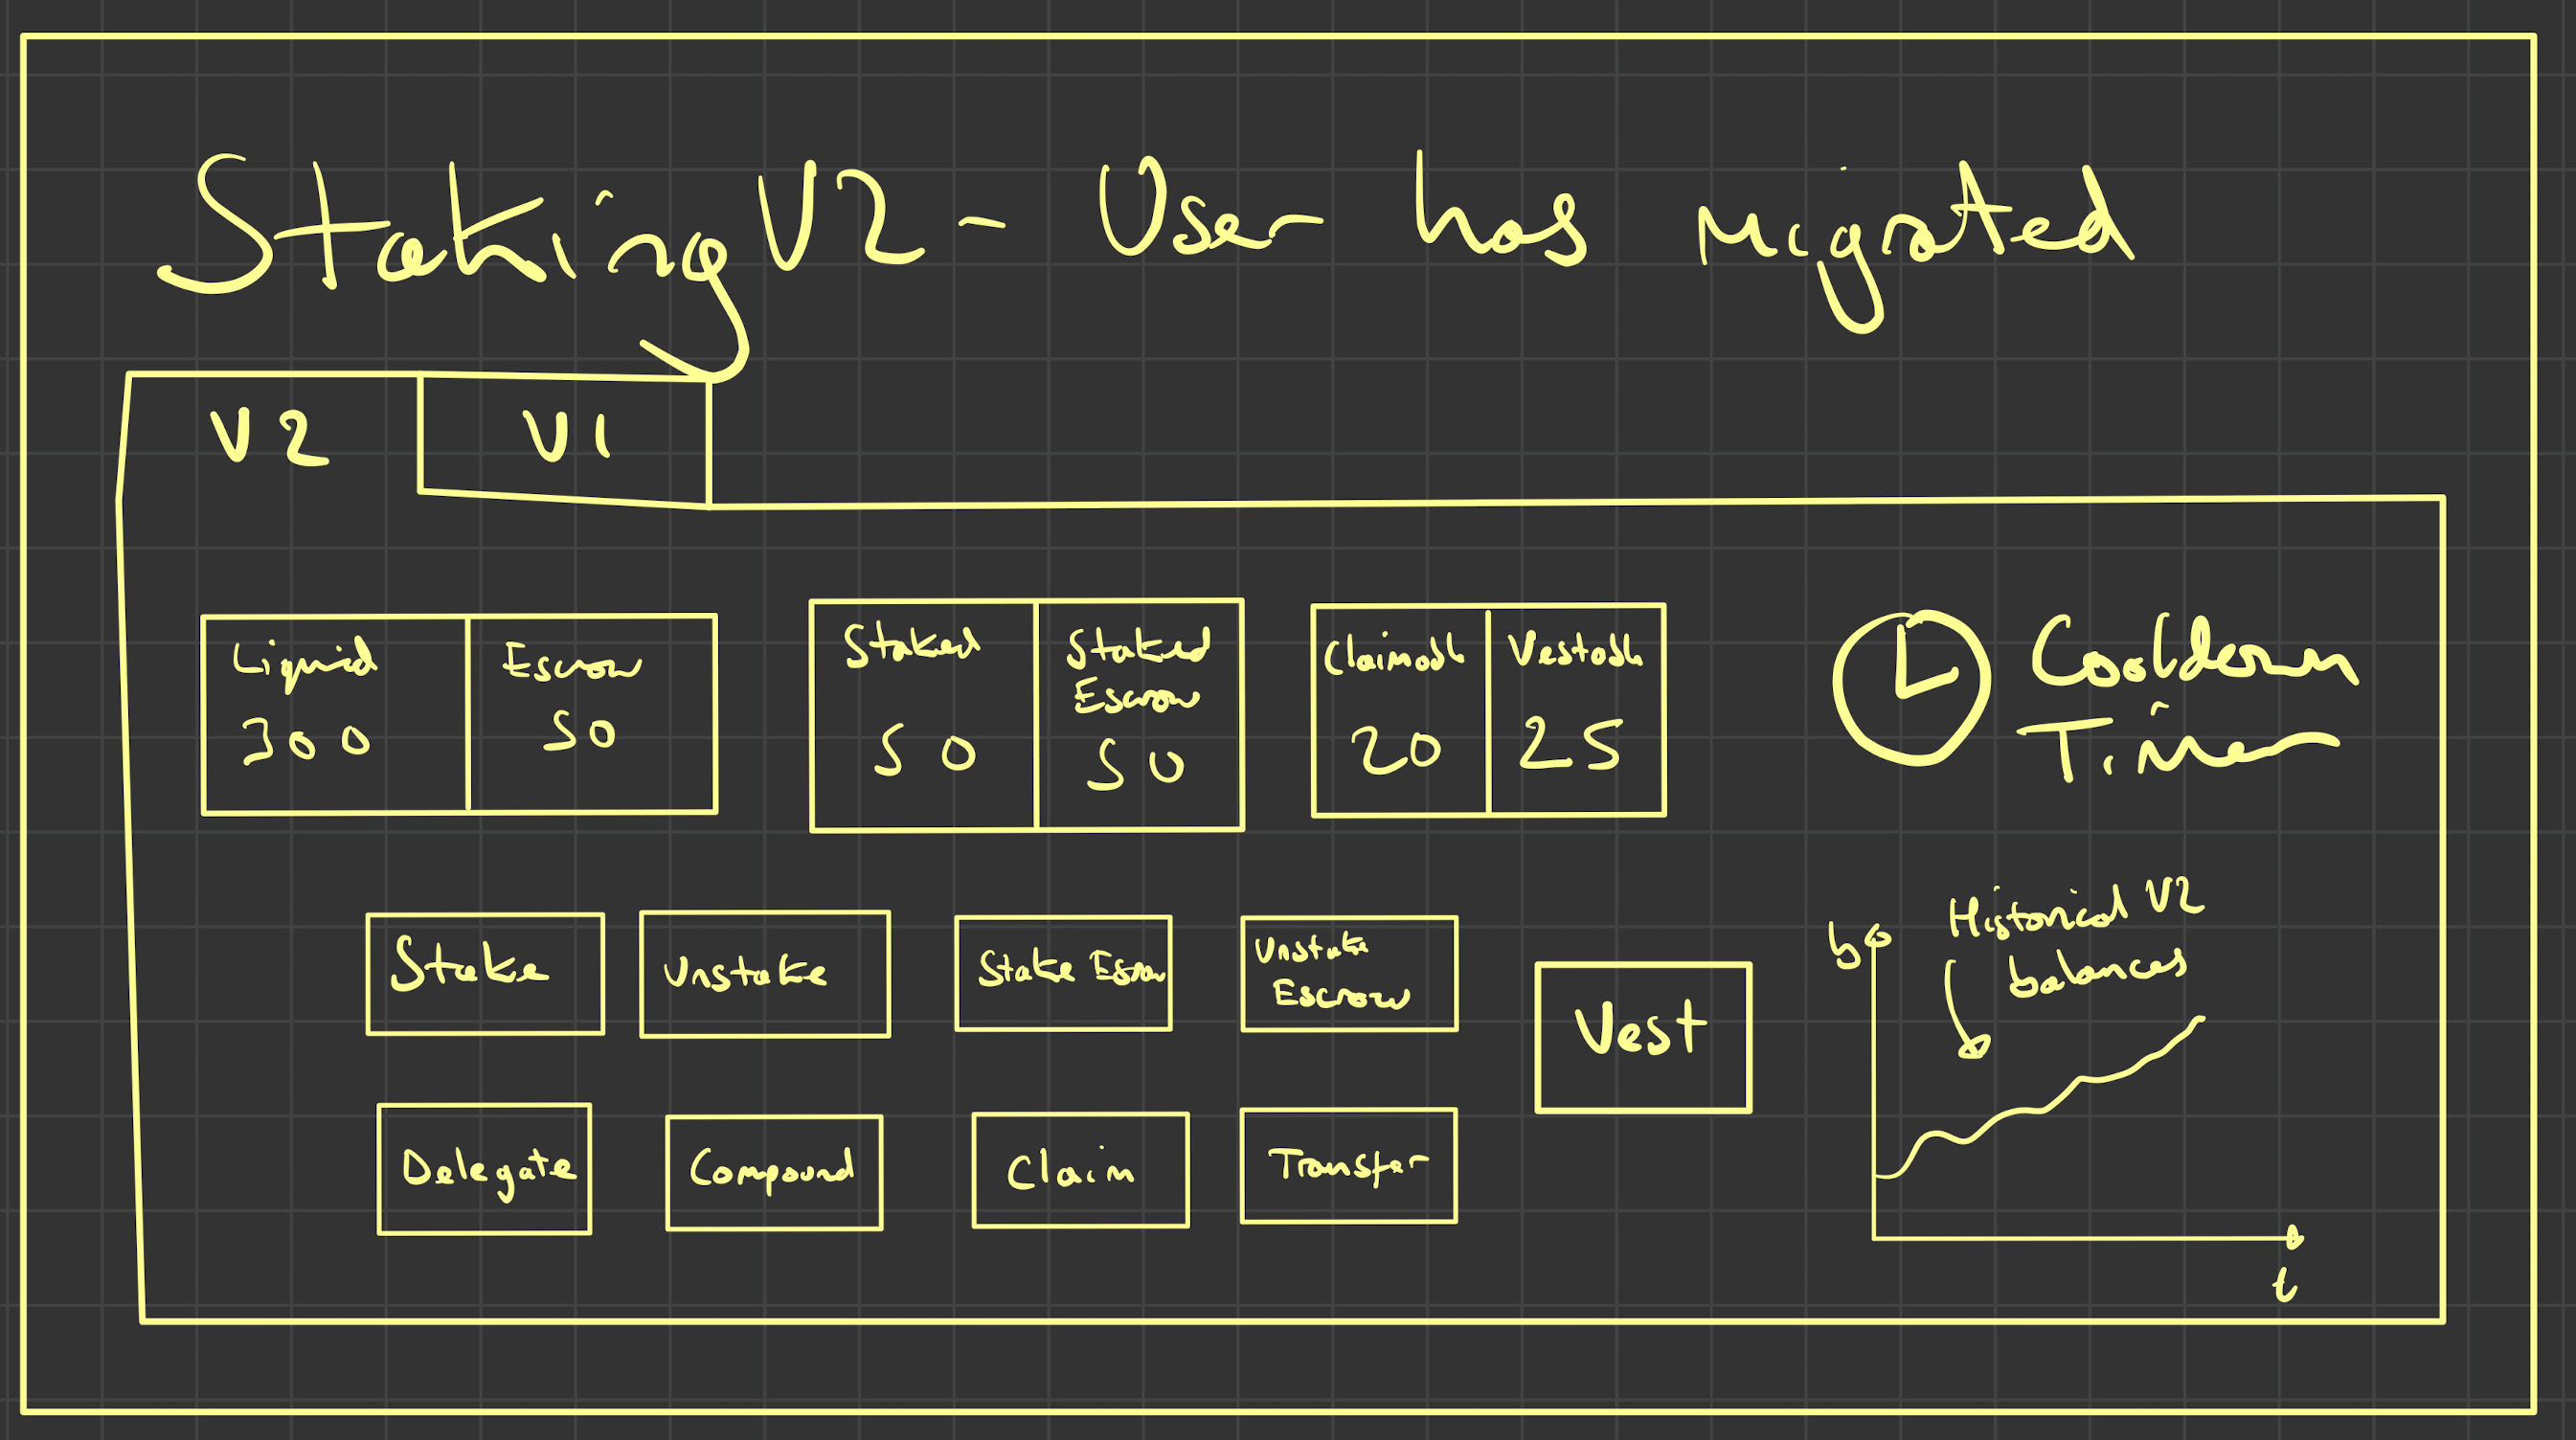 Staking V2 - User has migrated
V2 V1
Liquid Escrow
300 50
Staked Staked Escrow
50 50
Claimable Vestable
20 25
Cooldown
Timer
Stake Unstake Stake Escrow Unstake Escrow
Vest
Delegate Compound Claim Transfer
Historical V2
balances
b
t